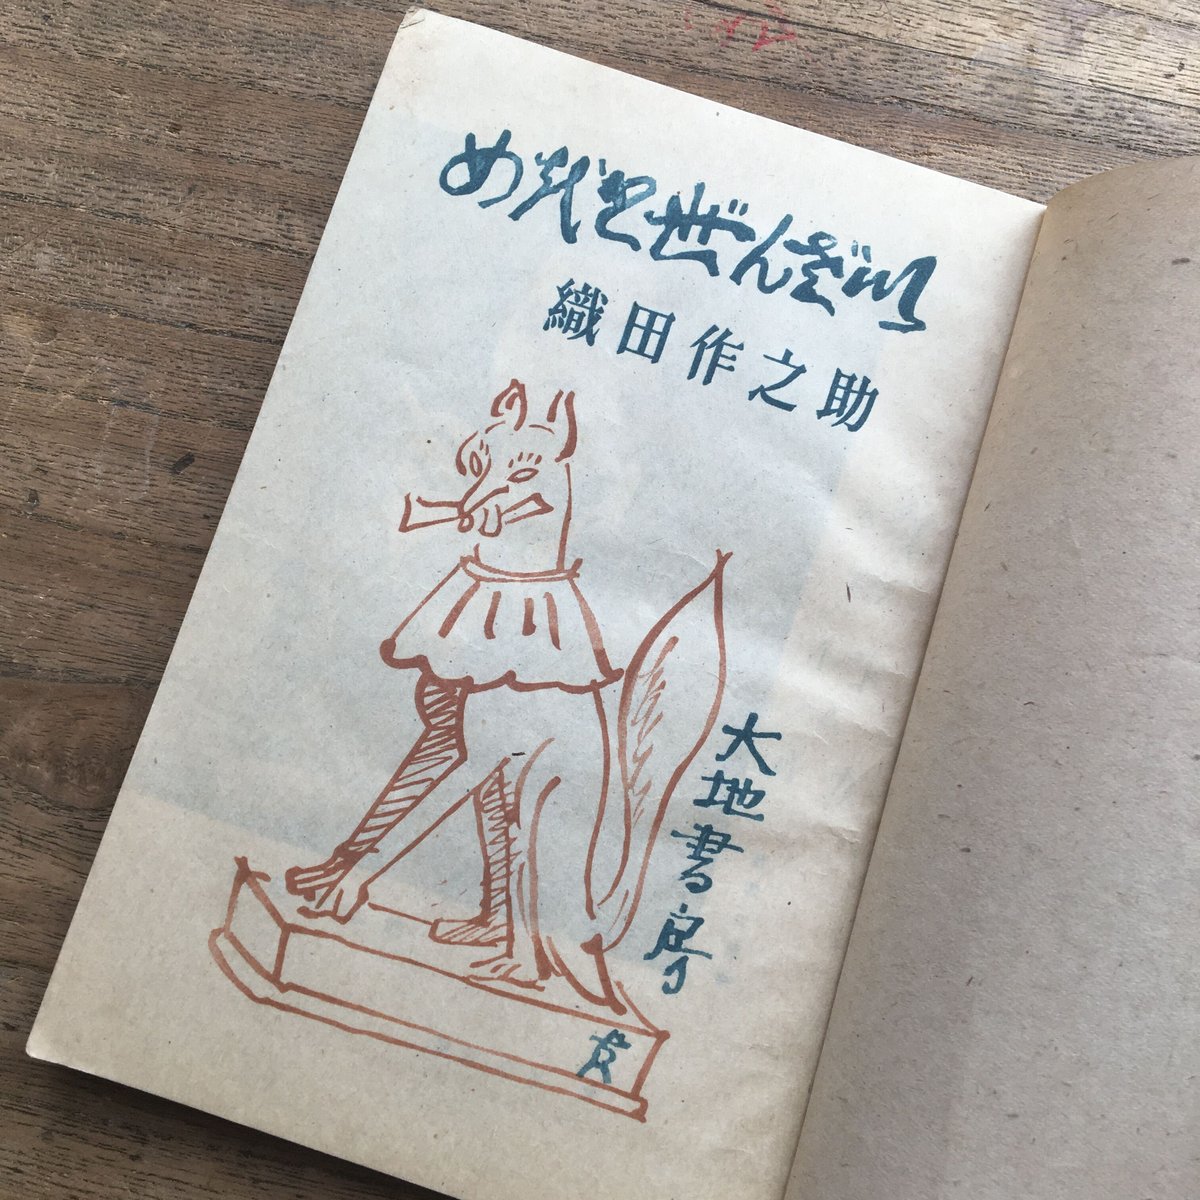 めおとぜんざい
織田作之助
大地書房